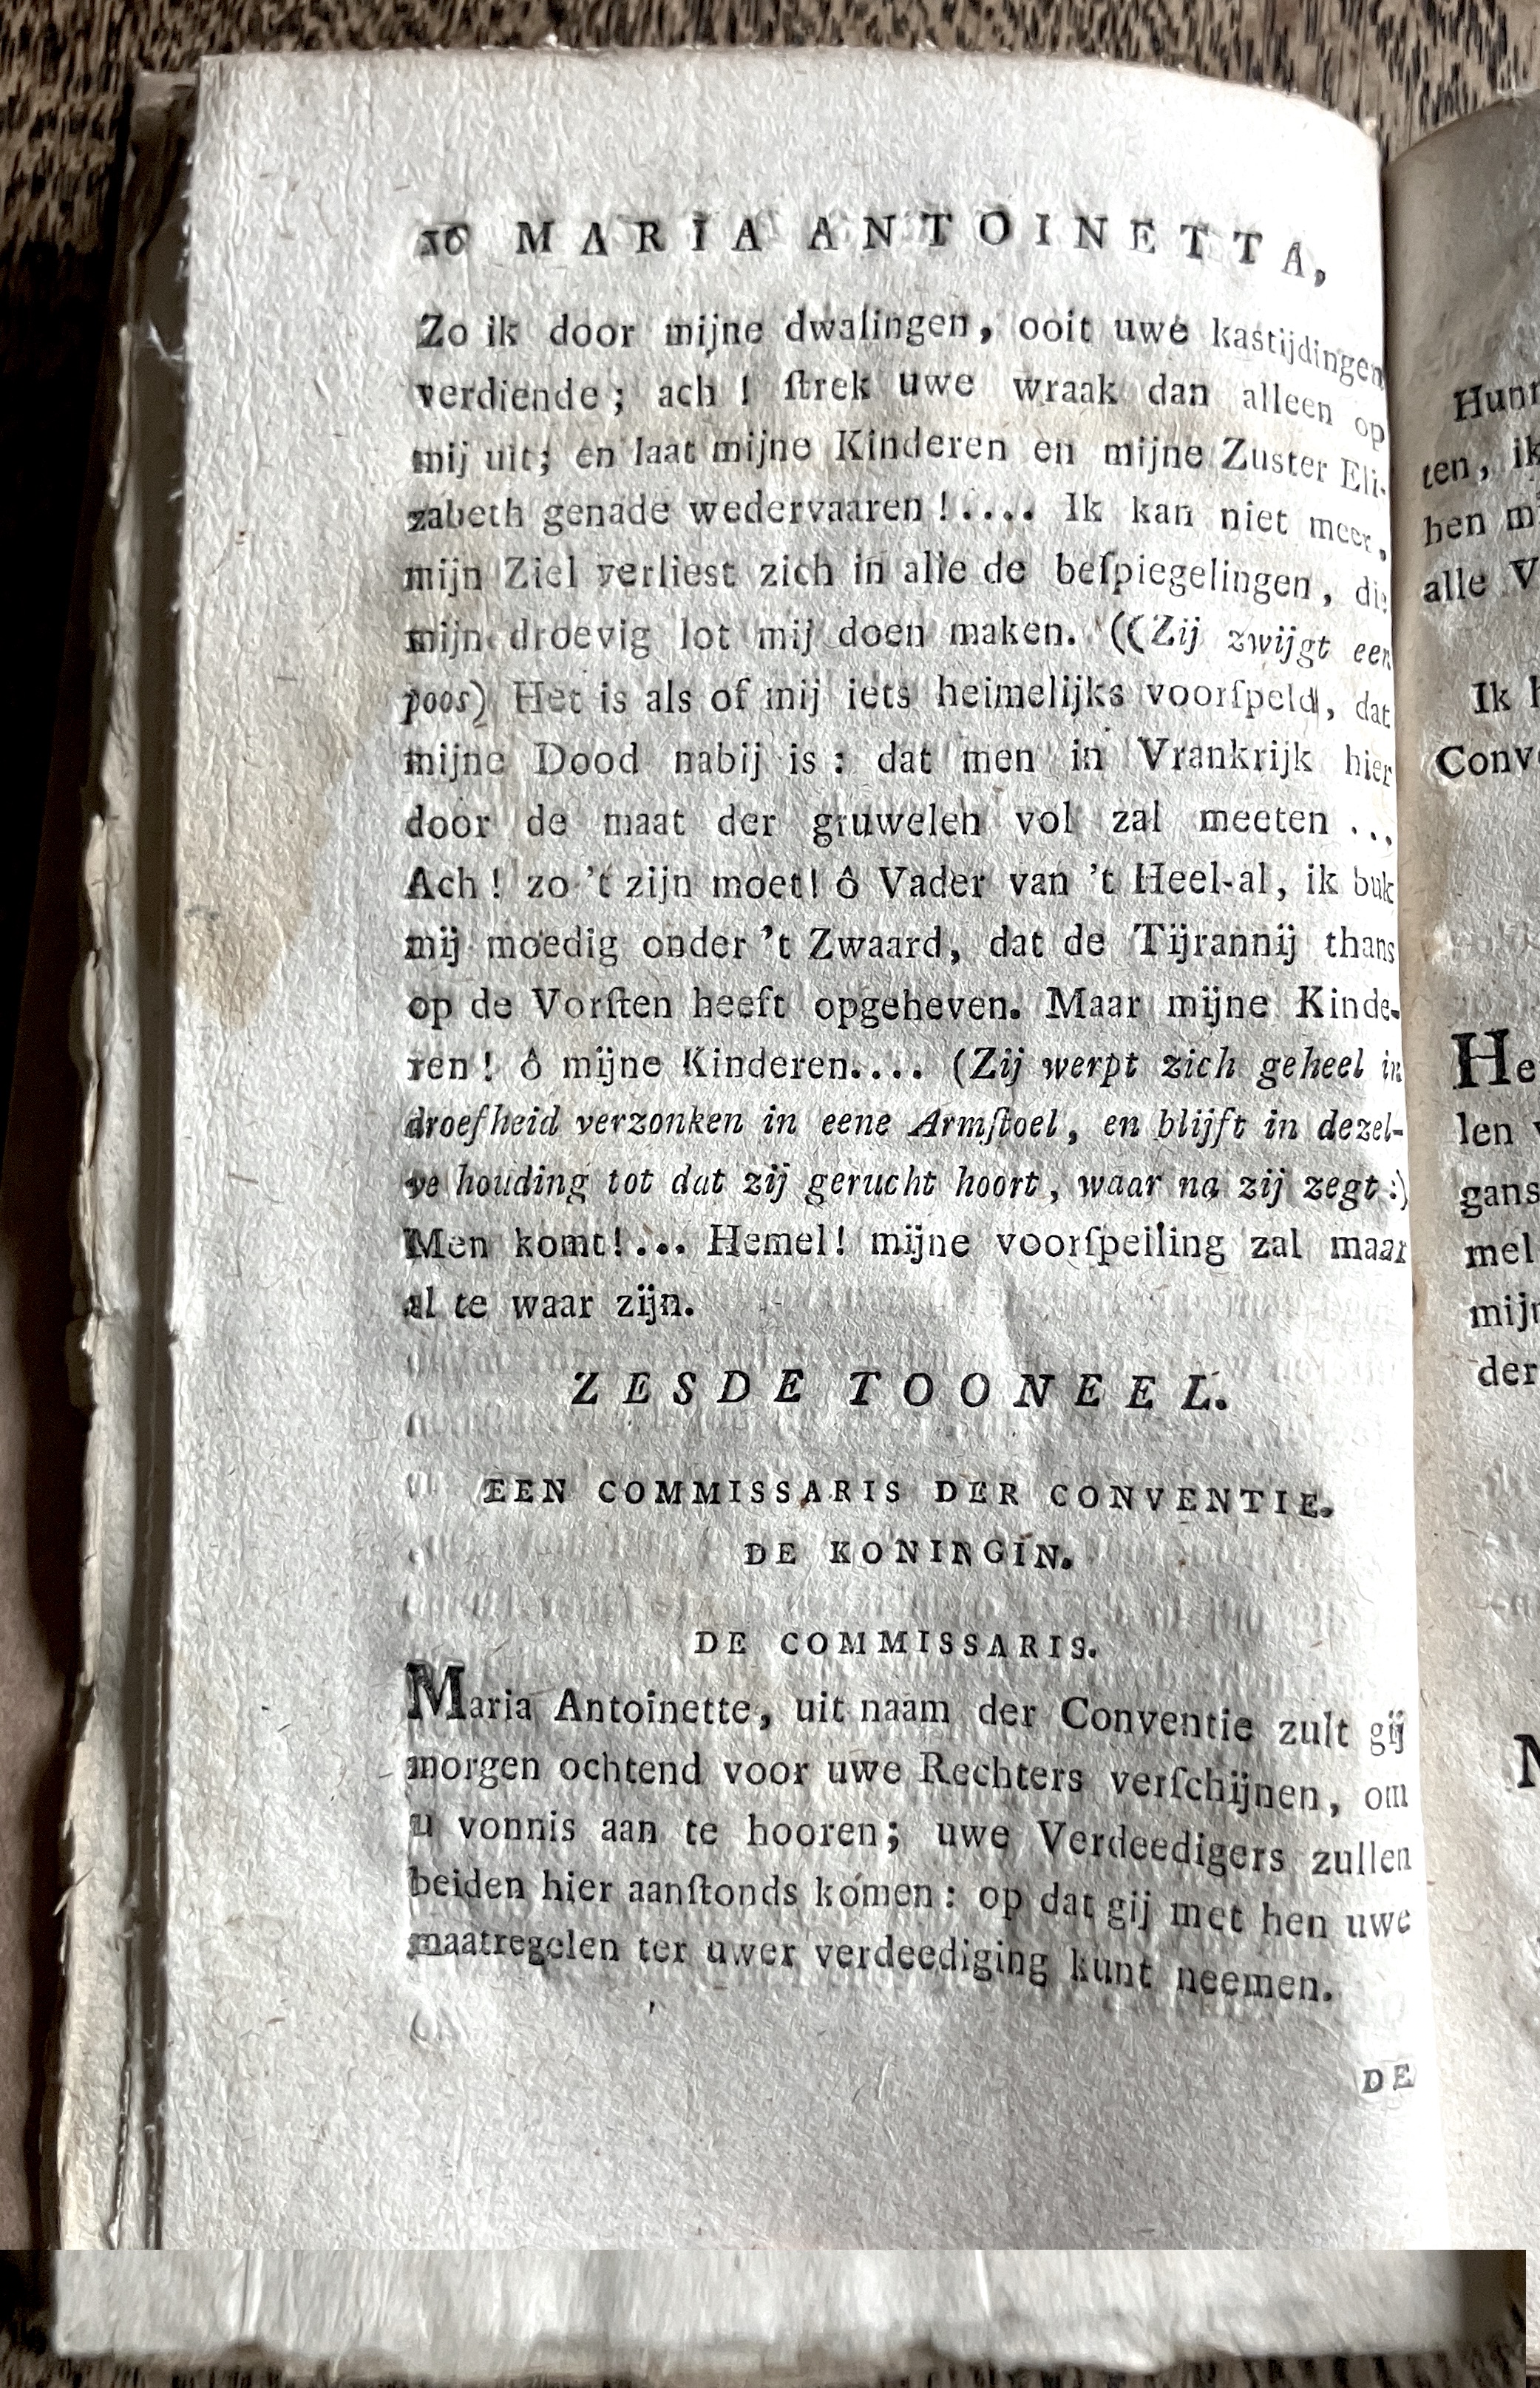 10 MARIA ANTOINETTA,
Zo ik door mijne dwalingen, ooit uwe kastijdingen
verdiende; ach! ſtrek uwe wraak dan alleen op
mij uit; en laat mijne Kinderen en mijne Zuster Eli-
zabeth genade wedervaaren!.... Ik kan niet meer,
mijn Ziel verliest zich in alle de beſpiegelingen, die
mijn droevig lot mij doen maken. ((Zij zwijgt een
poos) Het is als of mij iets heimelijks voorſpeld, dat
mijne Dood nabij is: dat men in Vrankrijk hier
door de maat der gruwelen vol zal meeten ...
Ach! zo 't zijn moet! ô Vader van 't Heel-al, ik buk
mij moedig onder 't Zwaard, dat de Tijrannij thans
op de Vorſten heeft opgeheven. Maar mijne Kinde-
ren! ô mijne Kinderen.... (Zij werpt zich geheel in
droefheid verzonken in eene Armſtoel, en blijft in dezel-
ve houding tot dat zij gerucht hoort, waar na zij zegt:)
Men komt!... Hemel! mijne voorſpelling zal maar
al te waar zijn.
ZESDE TOONEEL.
EEN COMMISSARIS DER CONVENTIE.
DE KONINGIN.
DE COMMISSARIS.
Maria Antoinette, uit naam der Conventie zult gij
morgen ochtend voor uwe Rechters verſchijnen, om
u vonnis aan te hooren; uwe Verdeedigers zullen
beiden hier aanſtonds komen: op dat gij met hen uwe
maatregelen ter uwer verdeediging kunt neemen.
DE
ten, ik
alle V
Ik
He
len
gans
mel
der